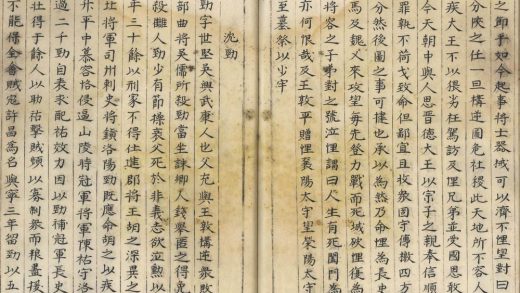 之卹乎如今起事將士器械可以濟不悝望對曰
分陝之任一旦構逆圖危社稷此天地所不容人
疾大王不以猥劣枉駕訪及悝兄弟並受國恩敢
今天朝中興人思晉德大王以宗子之親奉信順
罪孰不荷戈致命但鄙宜且收衆固守傳檄四方
分然後圖之事可捷也承以為然乃命悝為長史
馬及魏乂來攻望每先登力戰而死城破悝復為
將害之子弟對之號泣悝謂曰人生有死闔門為
亦何恨哉及王敦平贈悝襄陽太守望滎陽太守
至墓祭以少牢
沈勁
勁字世堅吳興武康人也父充與王敦構逆衆敗
部曲將吳儒所殺勁當坐誅鄉人錢舉匿之得免
殺讎人勁少有節操哀父死於非義志欲立勳以
年三十餘以刑家不得仕進郡將王胡之深異之
北將軍司州刺史將鎮洛陽勁既應命胡之以疾
升平中慕容恪侵逼山陵時冠軍將軍陳祐守洛
過二千勁自表求配祐效力因以勁補冠軍長史
壯得千餘人以助祐擊賊頻以寡制衆而糧盡援
不能得全會賊寇許昌為名興寧三年留勁以五